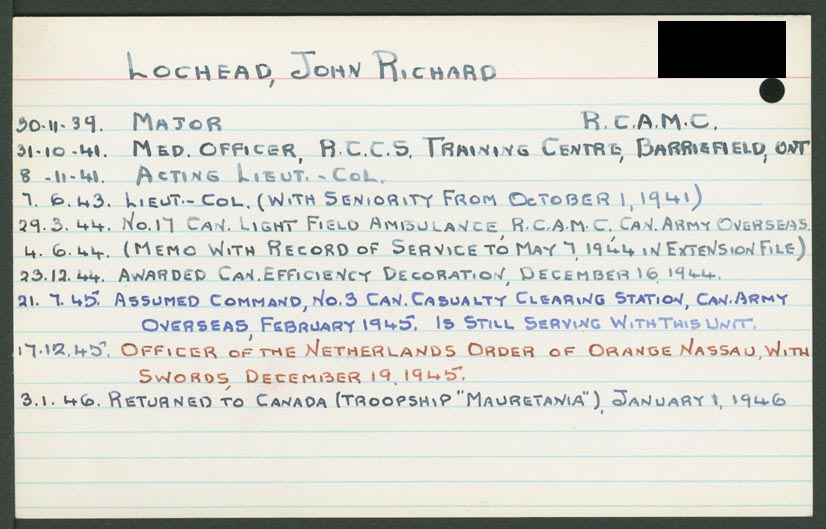 LOCHEAD, JOHN RICHARD
30-11-39. MAJOR R.C.A.M.C.
31-10-41. MED. OFFICER, R.C.C.S. TRAINING CENTRE, BARRIEFIELD, ONT
8-11-41. ACTING LIEUT.-COL.
7.6.43. LIEUT.-COL. (WITH SENIORITY FROM OCTOBER 1, 1941)
29.3.44. No.17 CAN. LIGHT FIELD AMBULANCE, R.C.A.M.C. CAN. ARMY OVERSEAS.
4.6.44. (MEMO WITH RECORD OF SERVICE TO MAY 7, 1944 IN EXTENSION FILE)
23.12.44. AWARDED CAN. EFFICIENCY DECORATION, DECEMBER 16, 1944.
21.7.45. ASSUMED COMMAND, NO.3 CAN. CASUALTY CLEARING STATION, CAN. ARMY
OVERSEAS, FEBRUARY 1945. IS STILL SERVING WITH THIS UNIT.
17.12.45. OFFICER OF THE NETHERLANDS ORDER OF ORANGE NASSAU, WITH
SWORDS, DECEMBER 19, 1945.
3.1.46. RETURNED TO CANADA (TROOPSHIP "MAURETANIA"), JANUARY 1, 1946